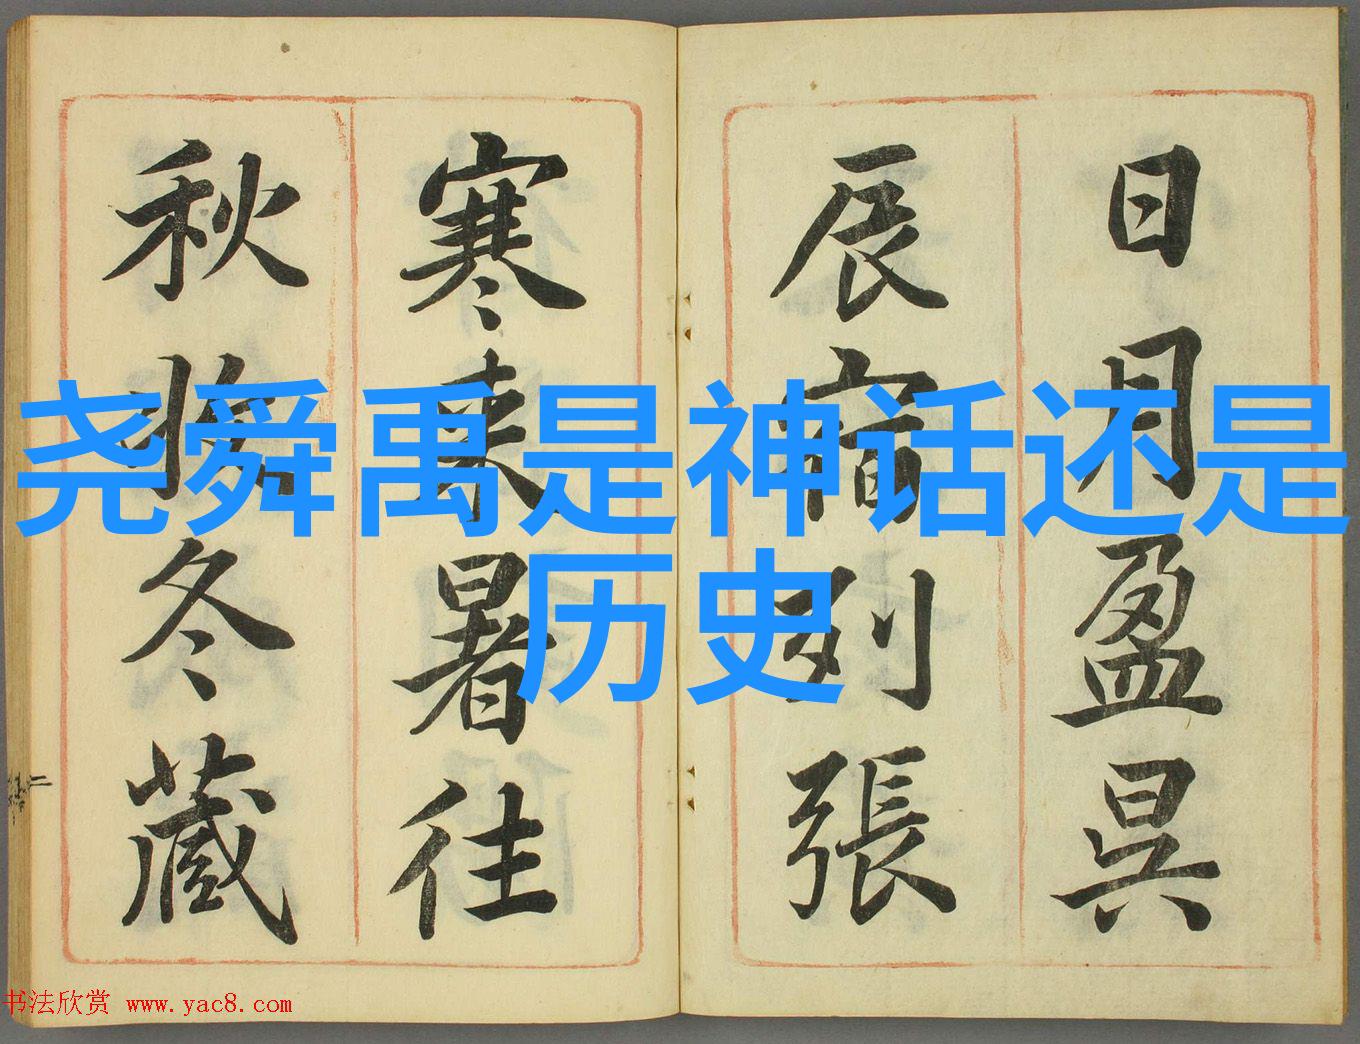 尧舜禹是神话还是
历史
日月盈昃
辰宿列張
寒来暑往
秋收冬藏
书法欣赏 www.yac8.com